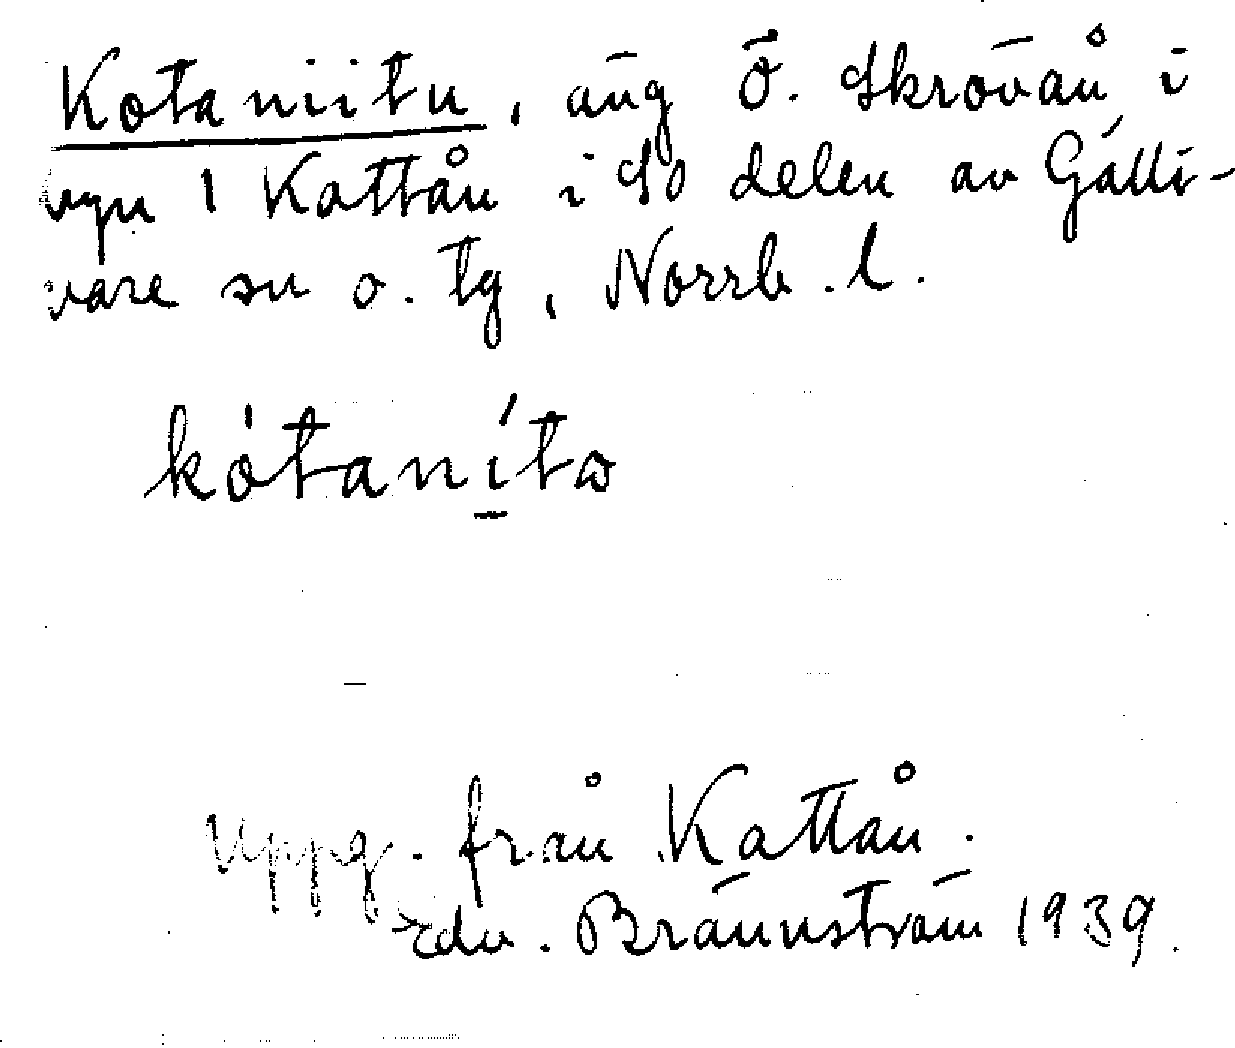 Kotaniitu, äng Ö. Skrövån i
byn 1 Kattån i So delen av Gälli-
vare sn o. tg, Norrb. l.
kótaníta
Uppg. från Kattån.
Edv. Brännström 1939.